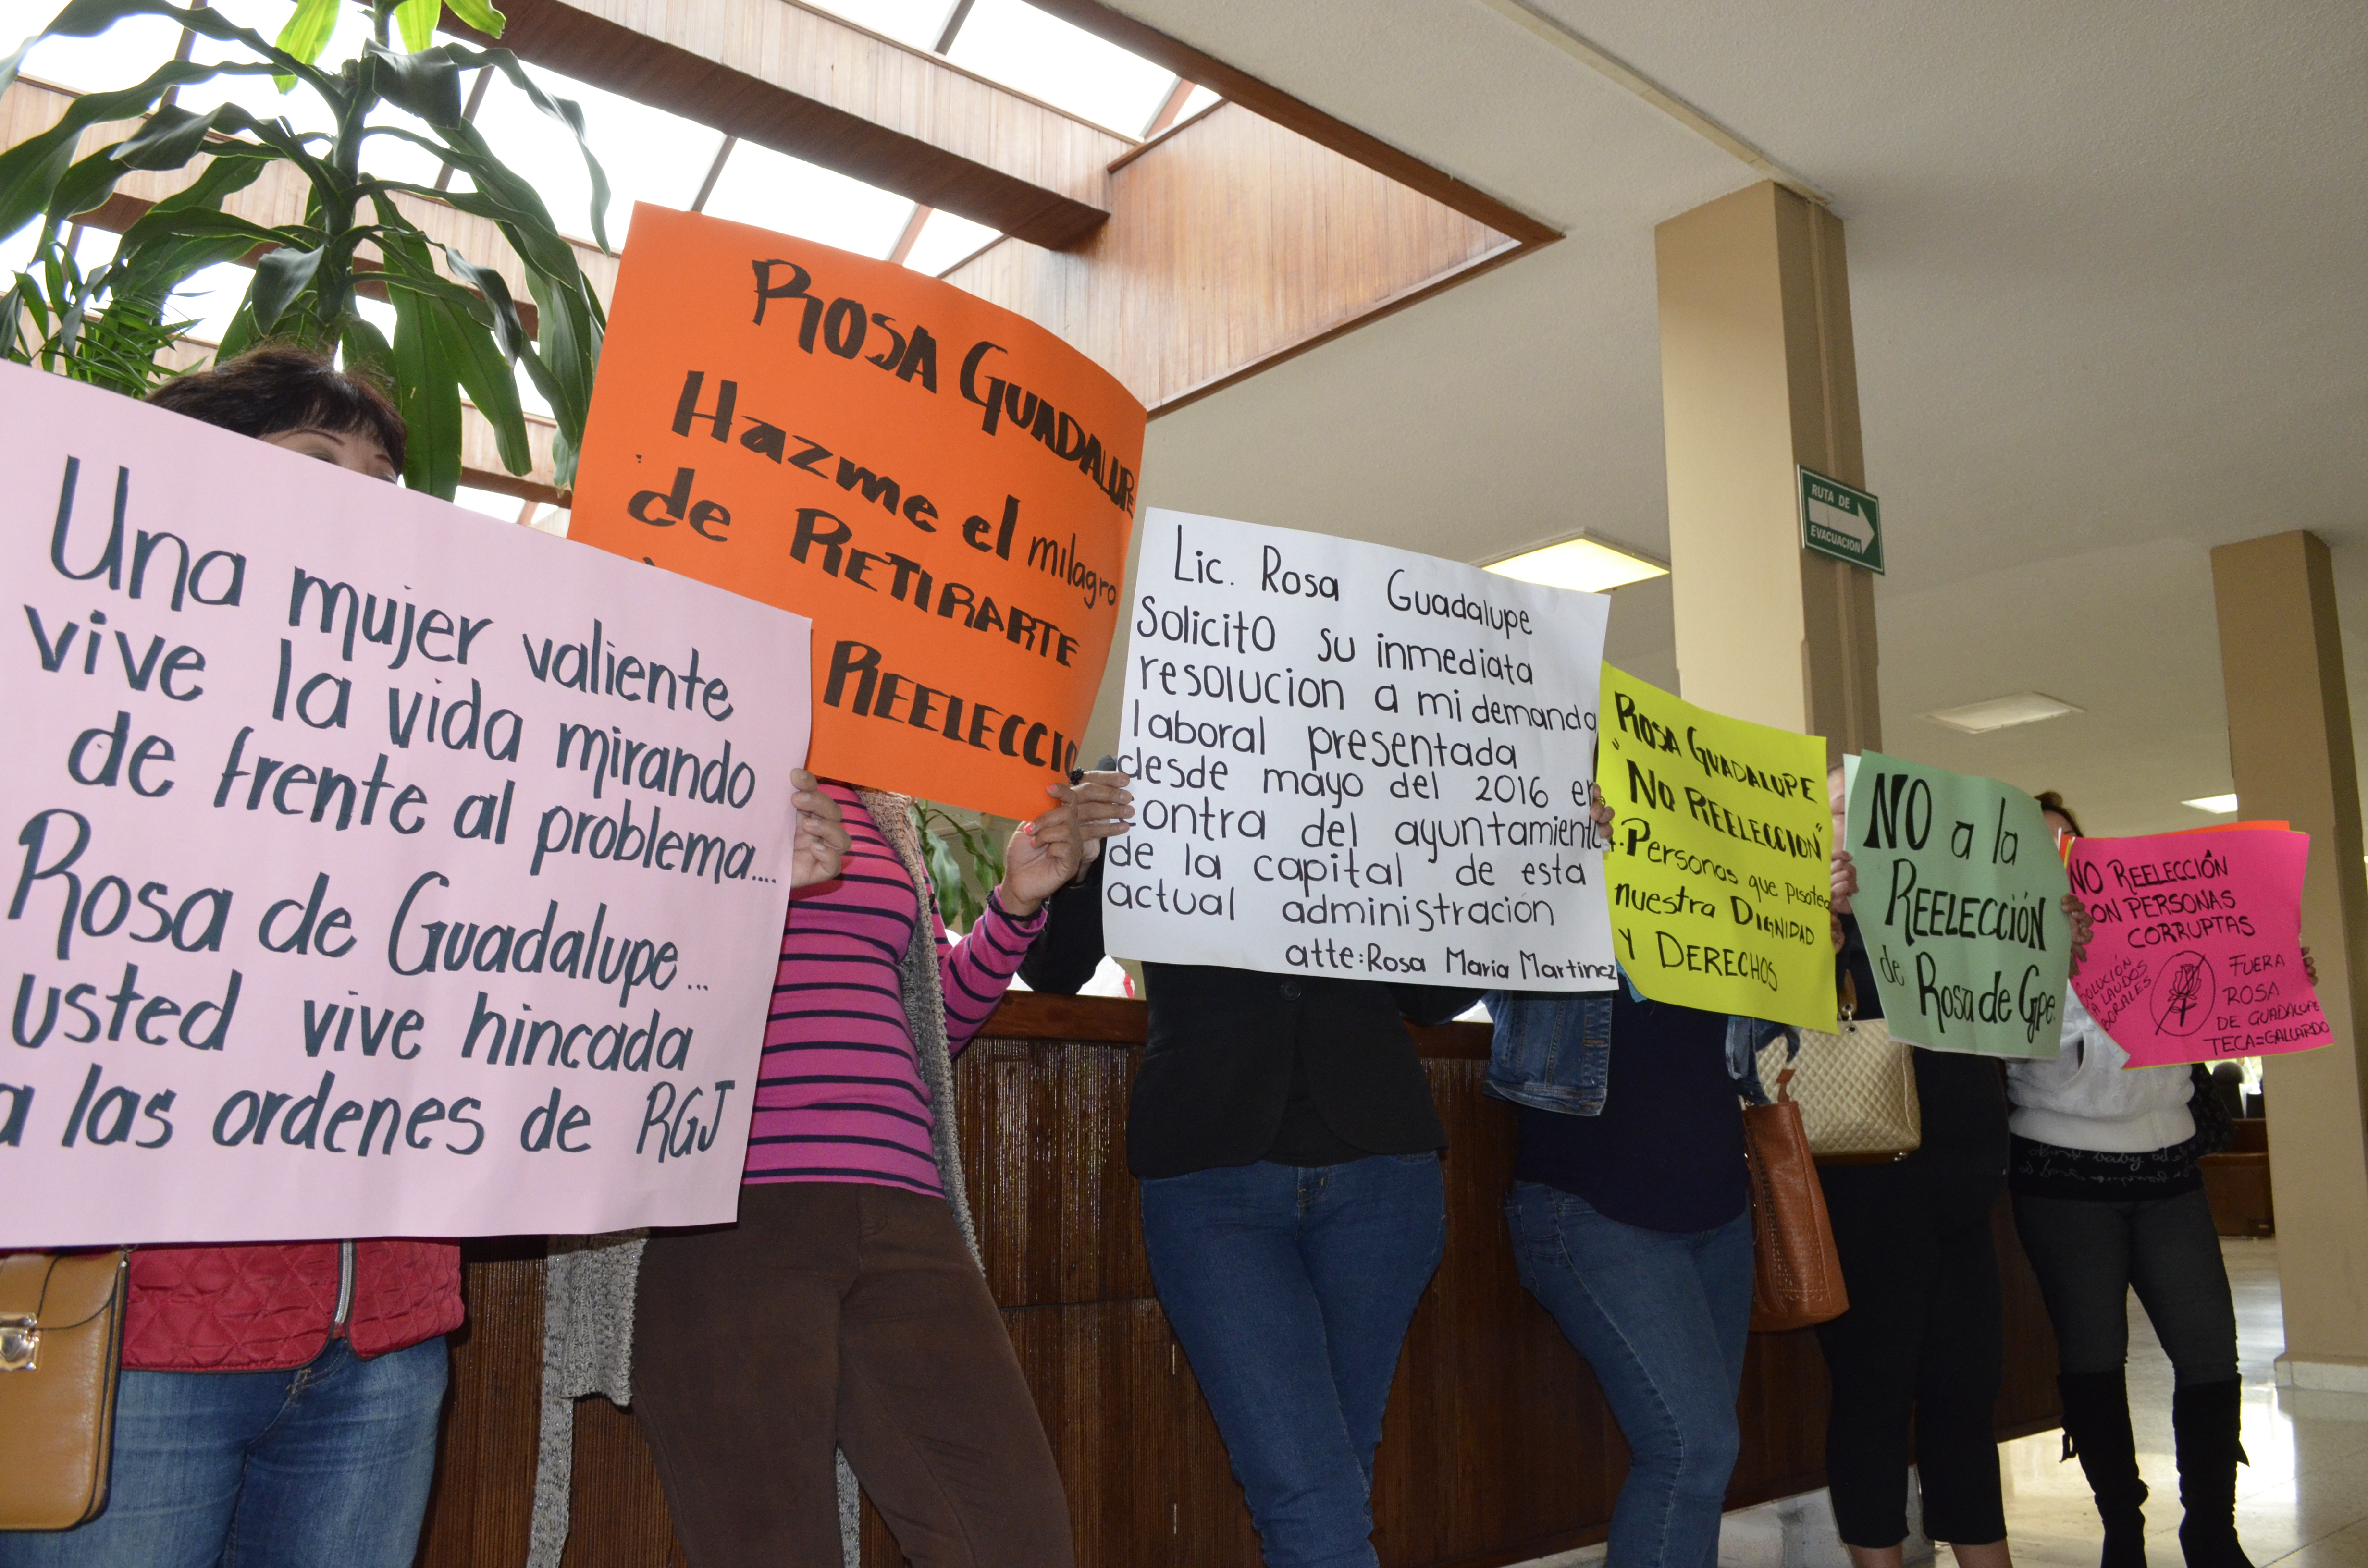 Una mujer valiente
vive la vida mirando
de frente al problema....
Rosa de Guadalupe...
usted vive hincada
a las ordenes de RGJ
ROSA GUADALUPE
Hazme el milagro
de RETIRARTE
REELECCIO
Lic. Rosa Guadalupe
Solicito su inmediata
resolucion a mi demanda
laboral presentada
desde mayo del 2016 en
contra del ayuntamiento
de la capital de esta
actual administración
atte: Rosa María Martinez
ROSA GUADALUPE
"NO REELECCION"
Personas que pisotea
nuestra DIGNIDAD
Y DERECHOS
NO a la
REELECCIÓN
de Rosa de Gpe.
NO REELECCIÓN
CON PERSONAS
CORRUPTAS
SOLUCIÓN
A LAUDOS
BORALES
FUERA
ROSA
DE GUADALUPE
TECA=GALLARDO
RUTA DE
EVACUACION